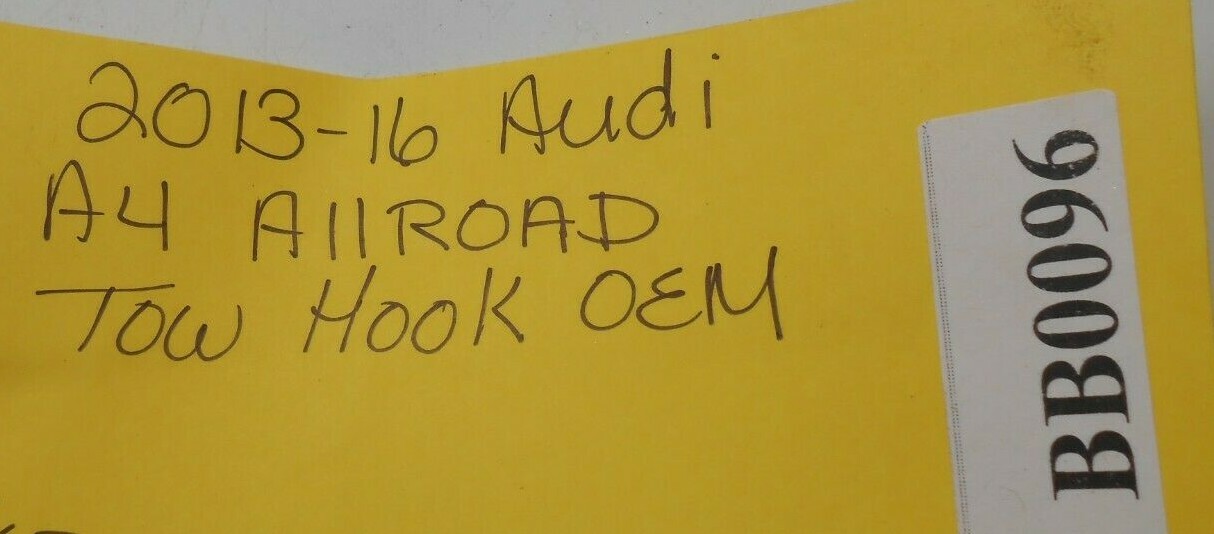 2013-16 Audi
A4 AllROAD
TOW HOOK OEM
BB0096